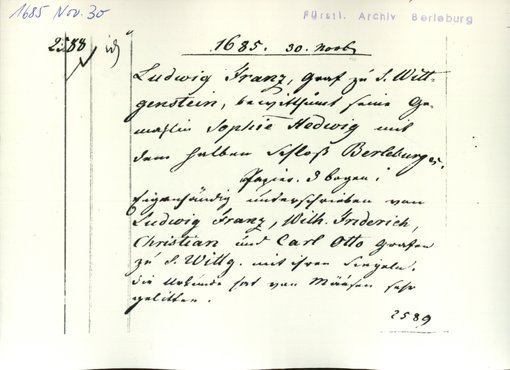 1685 Nov. 30
Fürstl. Archiv Berleburg
2588
1685. 30. Novb.
Ludwig Franz, Graf zu S. Witt-
genstein, bewitthumt seine Ge-
mahlin Sophie Hedwig mit
dem halben Schloß Berleburg
Papier. 3 bogen.
Eigenhändig unterschrieben von
Ludwig Franz, Wilh. Friderich,
Christian und Carl Otto Grafen
zu S. Wittg. mit ihren Siegeln.
die Urkunde hat von Mäusen sehr
gelitten.
2589